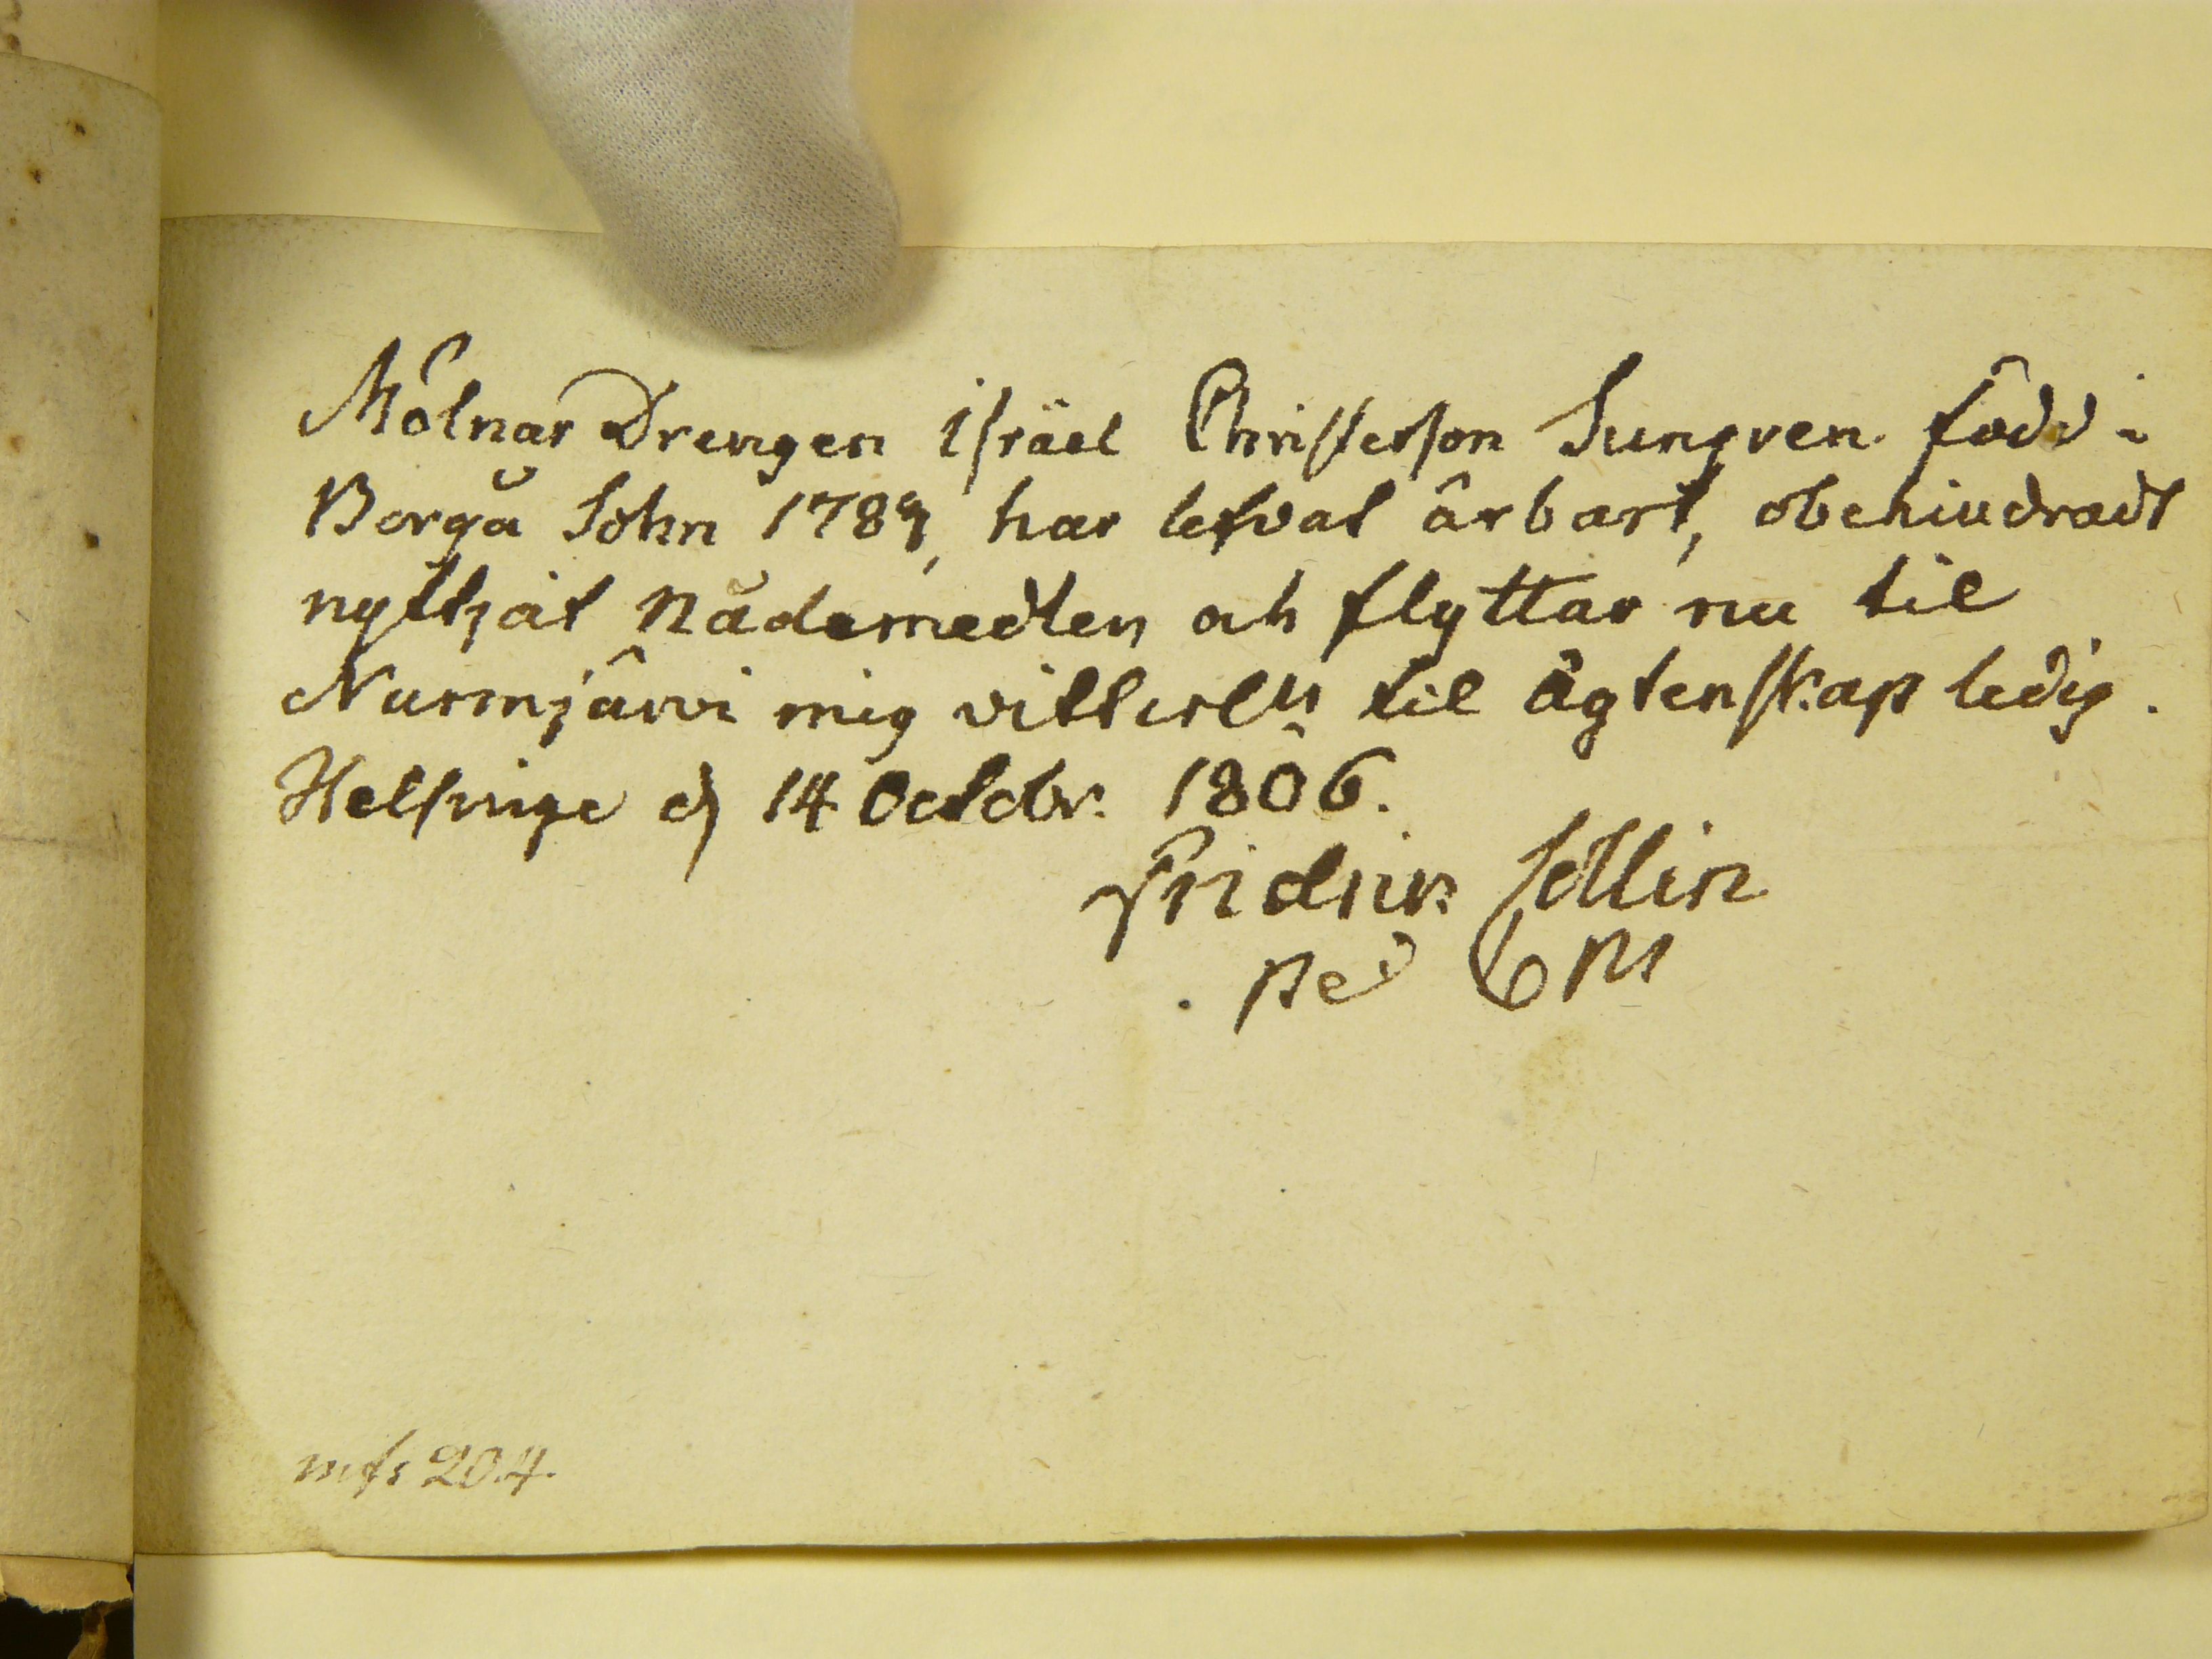 Mölnar Drengen Israël Christerson Sungren född i
Borgå Sohn 1789, har lefvat ärbart, obehindradt
nyttjat Nådemedlen och flyttar nu til
Nurmjärvi mig vitterln til ägtenskap ledig.
Helsinge d 14 Octobr. 1806.
Fridric Sellin
Ped
mfs 204.